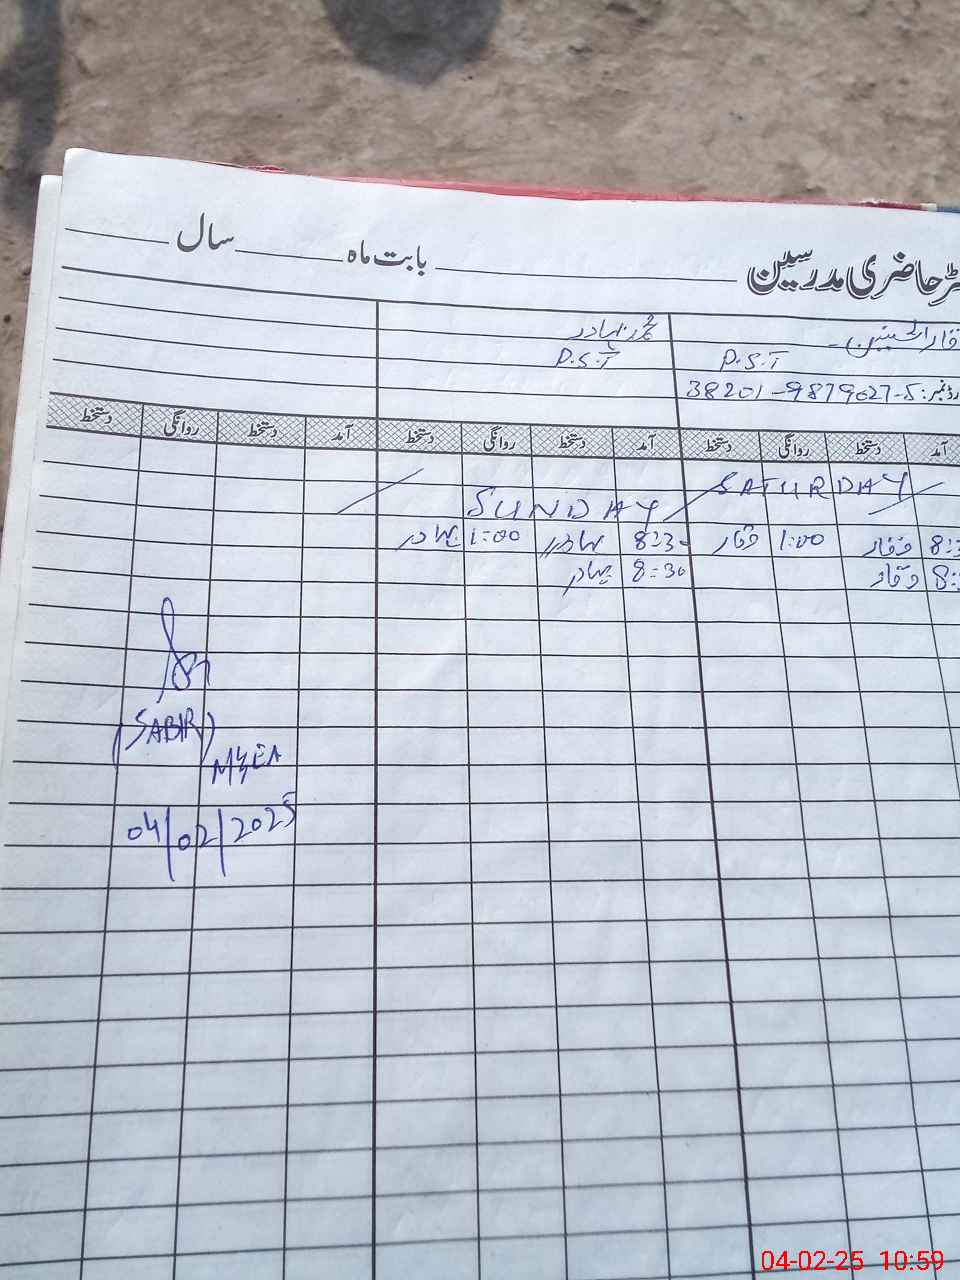 رجسٹر حاضری مدرسین ________ بابت ماہ ________ سال ________
وقار الحسنین محمد بہادر
P.S.T P.S.T
38201-9879027-5
آمد دستخط روانگی دستخط آمد دستخط روانگی دستخط آمد دستخط روانگی دستخط
SATURDAY
SUNDAY
8:3 وقار 1:00 وقار 8:30 بہادر 1:00 بہادر
8: وقار 8:30 بہادر
(SABIR)
M&EA
04/02/2025
04-02-25 10:59